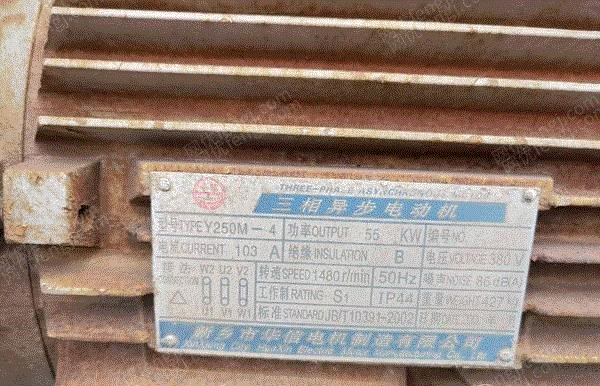 THREE-PHASE ASYNCHRONOUS MOTOR
三相异步电动机
型号TYPE Y250M-4 功率OUTPUT 55 KW 编号NO
电流CURRENT 103 A 绝缘INSULATION B 电压VOLTAGE 380 V
接法 W2 U2 V2 转速SPEED 1480r/min 50Hz 噪声NOISE 86dB(A)
△ U1 V1 W1 工作制RATING S1 IP44 重量WEIGHT 427kg
标准STANDARD JB/T10391-2002 日期DATE